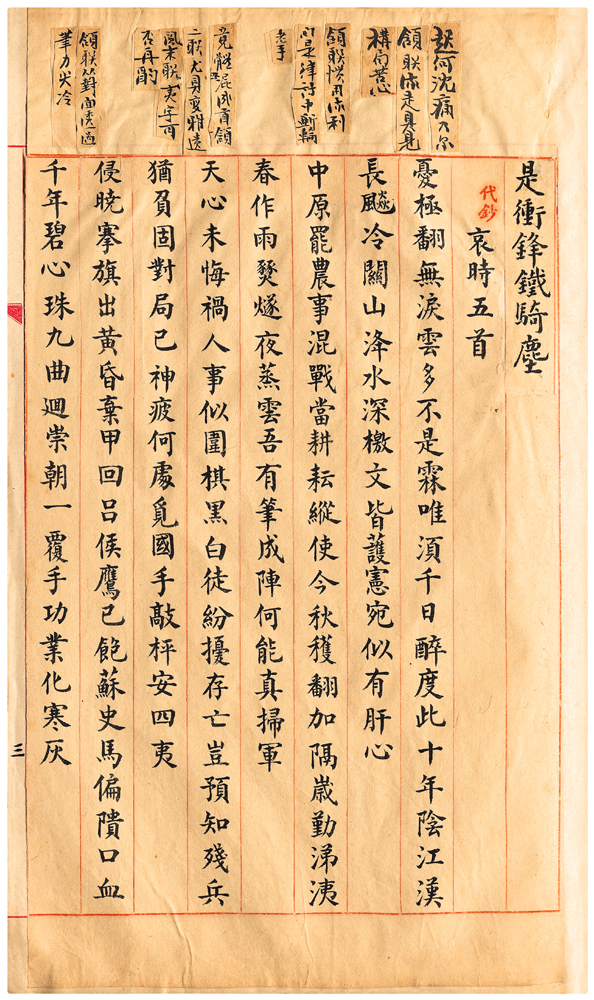 起何沈痛乃尔
頷聯流走具見
構句苦心
頷聯慣用流利
句是律詩中斲輪
老手
竟體混成首頷
二聯尤具變雅遺
風末聯夷字可
否再酌
頷聯从對面透過
筆力尖冷
是衝鋒鐵騎塵
代鈔
哀時五首
憂極翻無淚雲多不是霖唯須千日醉度此十年陰江漢
長飈冷關山洚水深檄文皆護憲宛似有肝心
中原罷農事混戰當耕耘縱使今秋穫翻加隔歲勤涕洟
春作雨燹燧夜蒸雲吾有筆成陣何能真掃軍
天心未悔禍人事似圍棋黑白徒紛擾存亡豈預知殘兵
猶負固對局已神疲何處覓國手敲枰安四夷
侵曉搴旗出黃昏棄甲回呂侯鷹已飽蘇史馬偏隤口血
千年碧心珠九曲迴崇朝一覆手功業化寒灰
三